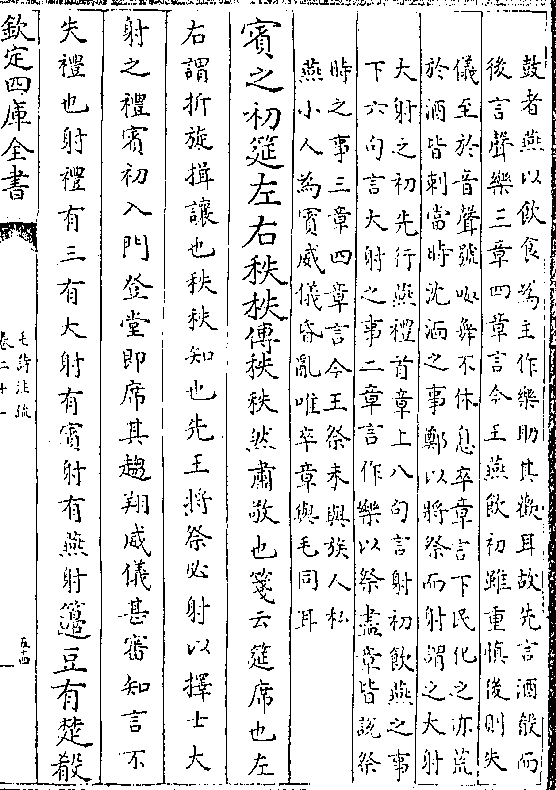 鼓者燕以飲食為主作樂助其歡耳故先言酒殽而
後言聲樂三章四章言今王燕飲初雖重慎後則失
儀至於音聲號呶舞不休息卒章言下民化之亦荒
於酒皆刺當時沈湎之事鄭以將祭而射謂之大射
大射之初先行燕禮首章上八句言射初飲燕之事
下六句言大射之事二章言作樂以祭盡章皆説祭
時之事三章四章言今王祭末與族人私
燕小人為賓威儀昏亂唯卒章與毛同耳
賓之初筵左右秩秩傳秩秩然肅敬也箋云筵席也左
右謂折旋揖讓也秩秩知也先王將祭必射以擇士大
射之禮賓初入門登堂即席其趨翔威儀甚審知言不
失禮也射禮有三有大射有賓射有燕射籩豆有楚殽
欽定四庫全書
毛詩注疏
卷二十一
五十四